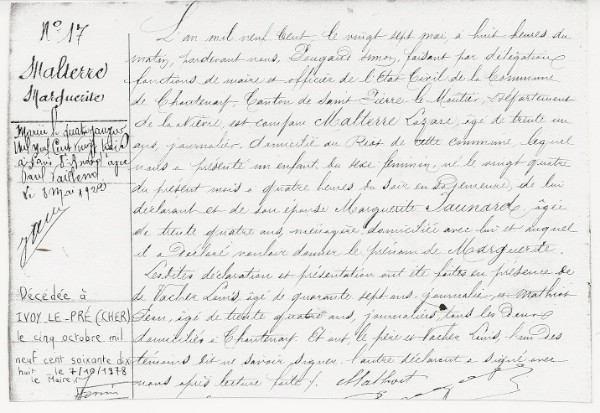 N° 17
Malterre
Marguerite
Mariée le quatre janvier
mil neuf cent vingt
à
le 8 Mai 1920
Décédée à
IVOY-LE-PRÉ (CHER)
le cinq octobre mil
neuf cent soixante dix
huit le 7/10/1978
le Maire
L'an mil neuf cent le vingt sept mai, à huit heures du
matin, pardevant nous, Simon, faisant par délégation
fonctions de maire et officier de l'Etat Civil de la Commune
de Chantenay, Canton de Saint Pierre le Moutier, Département
de la Nièvre, est comparu Malterre Lazare, âgé de trente un
ans, journalier, domicilié au de cette commune, lequel
nous a présenté un enfant du sexe féminin, né le vingt quatre
du présent mois à quatre heures du soir en sa demeure, de lui
déclarant et de son épouse Marguerite âgée
de trente quatre ans, ménagère, domiciliée avec lui et auquel
il a déclaré vouloir donner le prénom de Marguerite.
Lesdites déclaration et présentation ont été faites en présence de
de Vacher Louis, âgé de quarante sept ans, journalier, et Mathiot
Jean, âgé de trente quatre ans, journaliers tous les deux
domiciliés à Chantenay. Et ont, le père et Vacher Louis, l'un des
témoins dit ne savoir signer. l'autre déclarant a signé avec
nous après lecture faite /. Mathiot